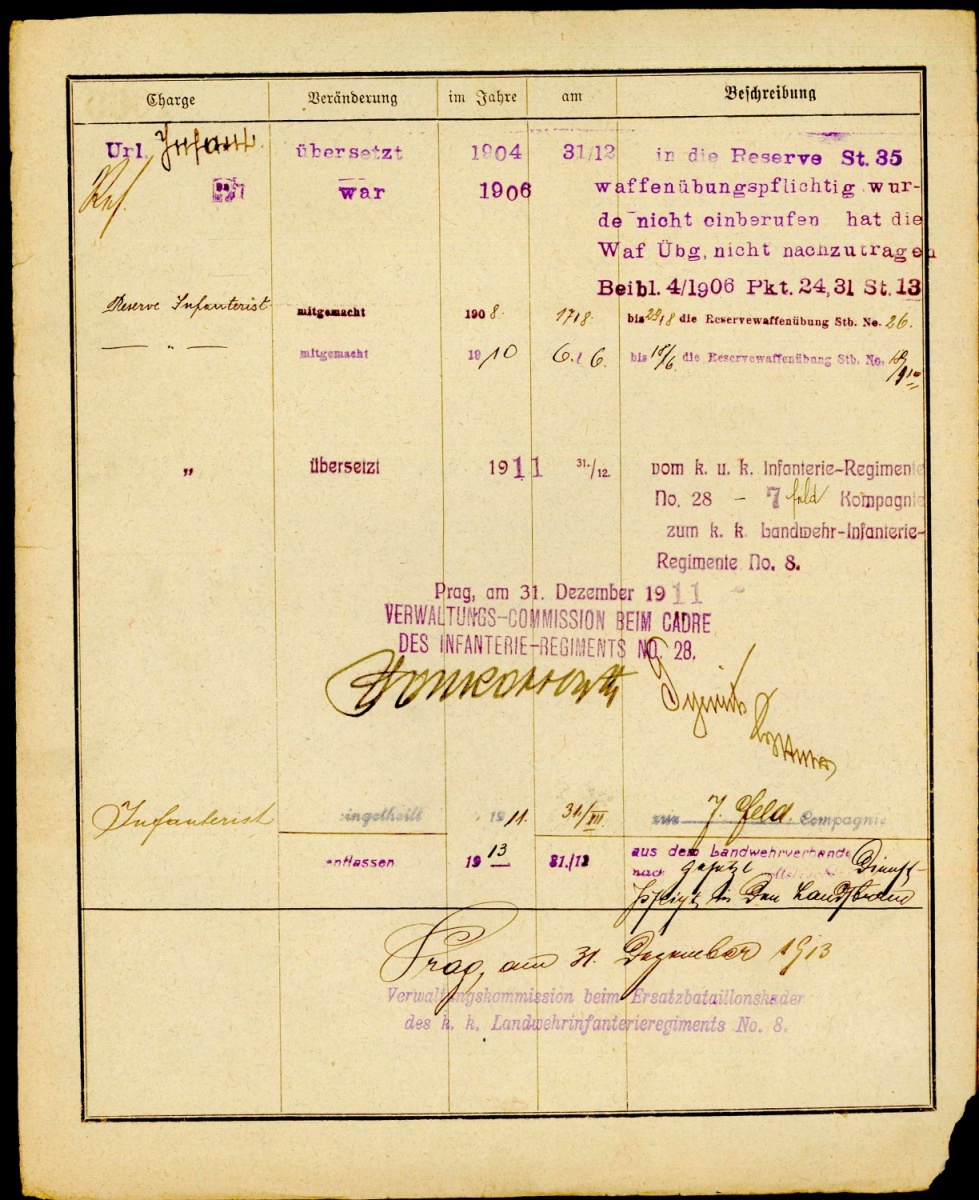 Charge Veränderung im Jahre am Beschreibung
Url. Infant. übersetzt 1904 31/12 in die Reserve St. 35
war 1906 waffenübungspflichtig wur-
de nicht einberufen hat die
Waf Übg, nicht nachzutragen
Beibl. 4/1906 Pkt. 24,31 St. 13
Reserve Infanterist mitgemacht 1908. 17/8. bis 29/8 die Reservewaffenübung Stb. No. 26.
— " — mitgemacht 1910 6./6. bis 18/6. die Reservewaffenübung Stb. No.
" übersetzt 1911 31./12. vom k. u. k. Infanterie-Regimente
No. 28 – 7 feld Kompagnie
zum k. k. Landwehr-Infanterie-
Regimente No. 8.
Prag, am 31. Dezember 1911
VERWALTUNGS-COMMISSION BEIM CADRE
DES INFANTERIE-REGIMENTS NO. 28.
Infanterist eingetheilt 1911. 31/XII. zur 7. Feld. Compagnie
entlassen 1913 31./12 aus dem Landwehrverbande
nach gesetzl. Dienst-
pflicht in den Landsturm
Prag, am 31. Dezember 1913
Verwaltungskommission beim Ersatzbataillonskader
des k. k. Landwehrinfanterieregiments No. 8.